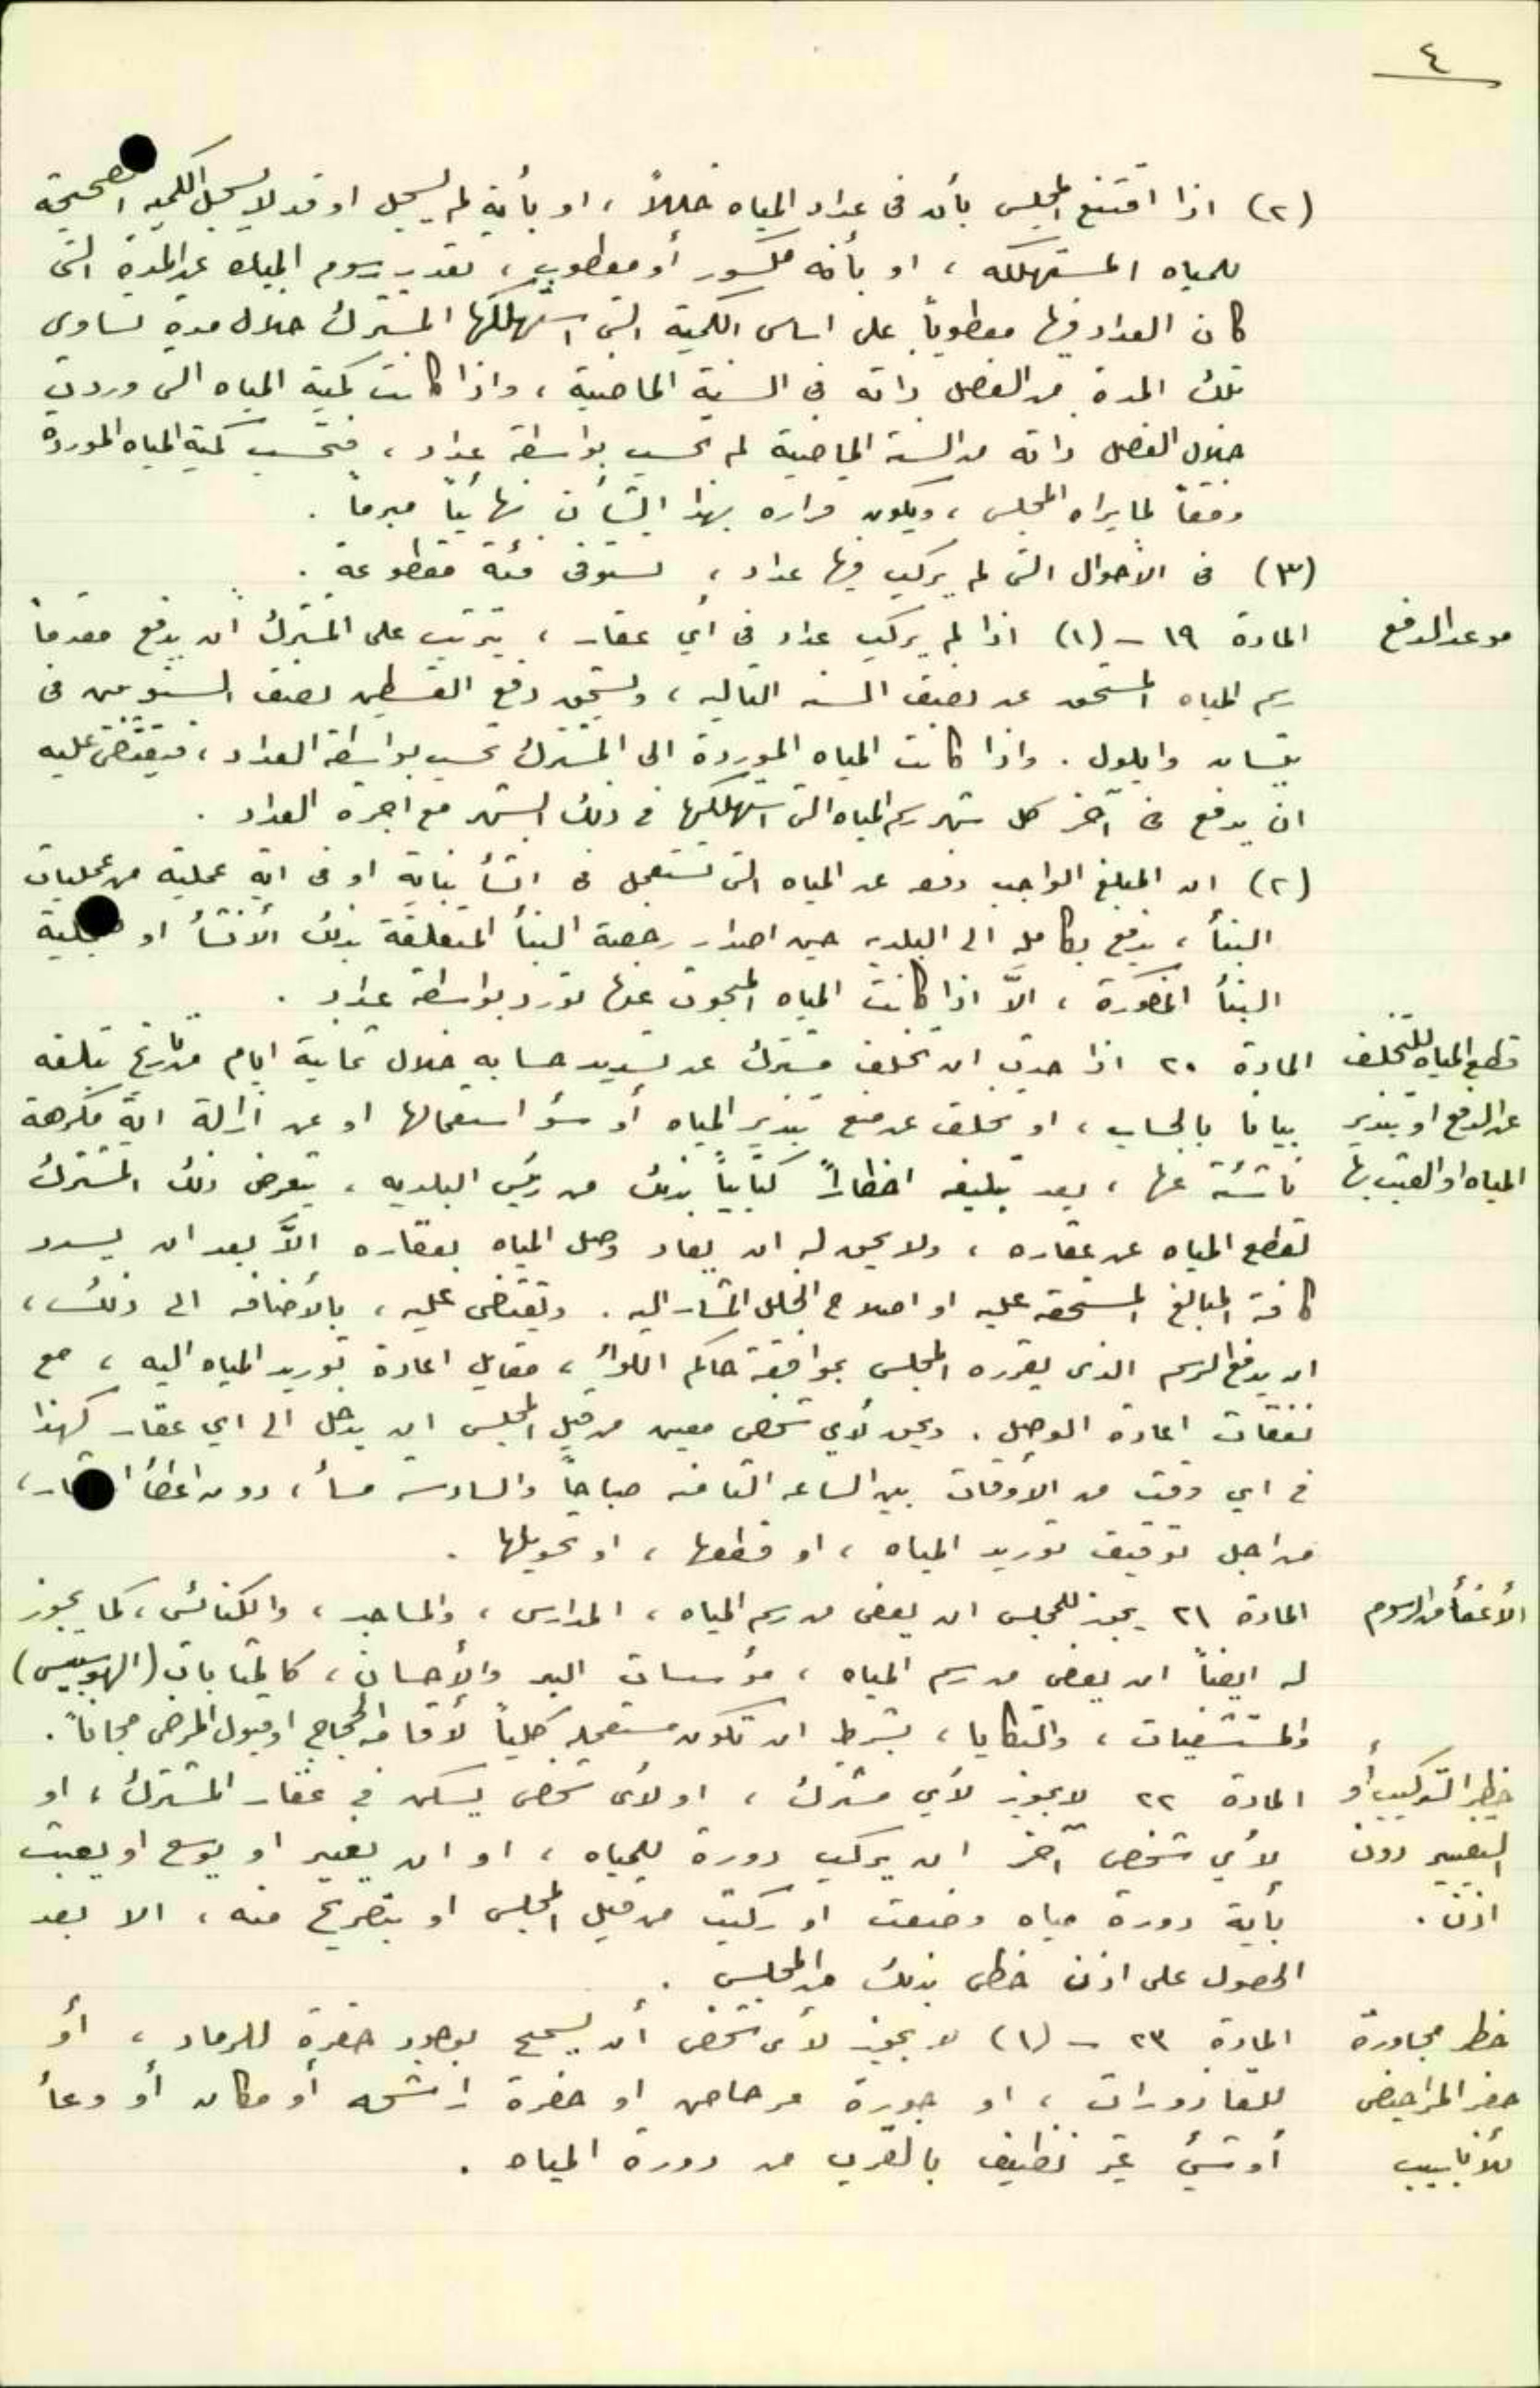 ٤
(٢) اذا اقتنع المجلس بأن في عداد المياه خللاً ، او بأنه لم يسجل او قد لا يسجل الكمية الصحيحة
للمياه المستهلكه ، او بأنه مكسور أو معطوب ، تقدر رسوم المياه عن المدة التي
كان العداد فيها معطوباً على اساس الكمية التي استهلكها المشترك خلال مدة تساوي
تلك المدة من الفصل ذاته في السنة الماضية ، واذا كانت كمية المياه التي وردت
خلال الفصل ذاته من السنة الماضية لم تحسب بواسطة عداد ، فتحسب كمية المياه الموردة
وفقاً لما يراه المجلس ، ويكون قراره بهذا الشأن نهائياً مبرماً .
(٣) في الأحوال التي لم يركب فيها عداد ، تستوفى فئة مقطوعة .
موعد الدفع
المادة ١٩ - (١) اذا لم يركب عداد في أي عقار ، يترتب على المشترك ان يدفع مقدماً
رسم المياه المستحق عن نصف السنه التاليه ، ويستحق دفع القسطين نصف السنويين في
نيسان وايلول . واذا كانت المياه الموردة الى المشترك تحسب بواسطة العداد ، فيقتضى عليه
ان يدفع في آخر كل شهر رسم المياه التي استهلكها في ذلك الشهر مع اجرة العداد .
(٢) ان المبلغ الواجب دفعه عن المياه التي تستعمل في انشأ بناية او في اية عملية من عمليات
البنأ ، يدفع بكامله الى البلديه حين اصدار رخصة البنأ المتعلقة بذلك الأنشأ او عملية
البنأ المذكورة ، الاَّ اذا كانت المياه المبحوث عنها تورد بواسطة عداد .
قطع المياه للتخلف
عن الدفع او تبذير
المياه او العبث بها
المادة ٢٠ اذا حدث ان تخلف مشترك عن تسديد حسابه خلال ثمانية ايام من تاريخ تبلغه
بياناً بالحساب ، او تخلف عن منع تبذير المياه أو سؤ استعمالها او عن ازالة اية مكرهة
ناشئة عنها ، بعد تبليغه اخطاراً كتابياً بذلك من رئيس البلديه ، يتعرض ذلك المشترك
لقطع المياه عن عقاره ، ولا يحق له ان يعاد وصل المياه بعقاره الاَّ بعد ان يسدد
كافة المبالغ المستحقه عليه او اصلاح الخلل المشار اليه . ويقتضى عليه ، بالأضافه الى ذلك ،
ان يدفع الرسم الذي يقرره المجلس بموافقة حاكم اللوأ ، مقابل اعادة توريد المياه اليه ، مع
نفقات اعادة الوصل . ويحق لأي شخص معين من قبل المجلس ان يدخل الى اي عقار كهذا
في اي وقت من الأوقات بين الساعه الثامنه صباحاً والسادسه مسأ ، دون اعطأ
من اجل توقيف توريد المياه ، او قطعها ، او تحويلها .
الأعفأ من الرسوم
المادة ٢١ يجوز للمجلس ان يعفي من رسم المياه ، المدارس ، والمساجد ، والكنائس ، كما يجوز
له ايضاً ان يعفي من رسم المياه ، مؤسسات البر والأحسان ، كالمتابات (الهوسبيس)
والمستشفيات ، والتكايا ، بشرط ان تكون مستعمله كلياً لأقامة الحجاج او قبول المرضى مجاناً .
حظر التركيب أو
التغيير دون
اذن .
المادة ٢٢ لا يجوز لأي مشترك ، او لأي شخص يسكن في عقار المشترك ، او
لأي شخص آخر ان يركب دورة للمياه ، او ان يغير او يوسع او يعبث
بأية دورة مياه وضعت او ركبت من قبل المجلس او بتصريح منه ، الا بعد
الحصول على اذن خطي بذلك من المجلس .
حظر مجاورة
حفر المراحيض
للأنابيب
المادة ٢٣ - (١) لا يجوز لأي شخص أن يسمح بوجود حفرة للرماد ، أو
للقاذورات ، او جورة مرحاض او حفرة راشحه أو مكان أو وعأ
أو شئ غير نظيف بالقرب من دورة المياه .